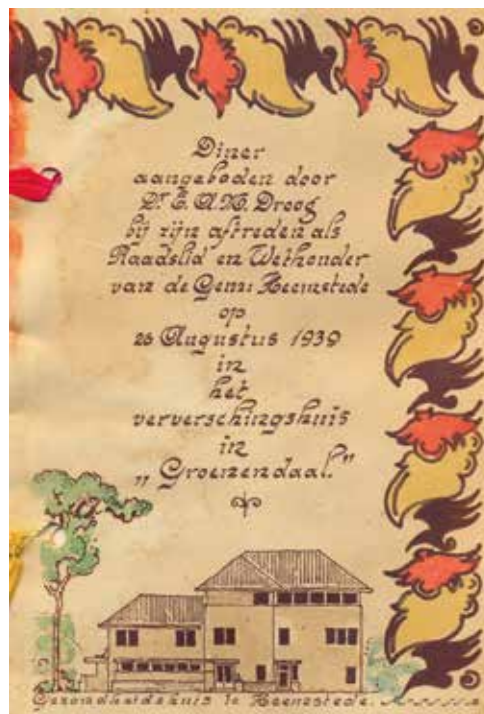 Diner
aangeboden door
Dr. E.A.M. Droog
bij zijn aftreden als
Raadslid en Wethouder
van de Gem: Heemstede
op
26 Augustus 1939
in
het
ververschingshuis
in
„Groenendaal."
Gezondheidshuis te Heemstede.